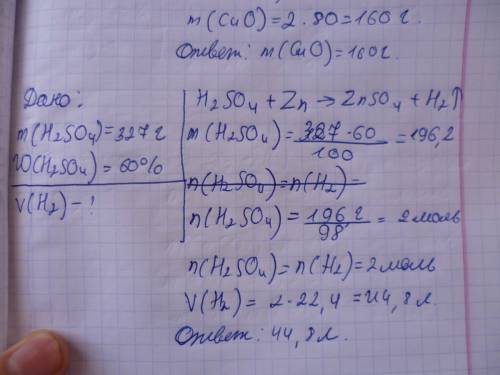 m(CuO)=2·80=160г.
Ответ: m(CuO)=160г.
Дано:
m(H₂SO₄)=327г
W(H₂SO₄)=60%
V(H₂)-?
H₂SO₄+Zn→ZnSO₄+H₂↑
m(H₂SO₄)=327·60/100=196,2
n(H₂SO₄)=n(H₂)=
n(H₂SO₄)=196г/98=2моль
n(H₂SO₄)=n(H₂)=2моль
V(H₂)=2·22,4=44,8л.
Ответ: 44,8л.